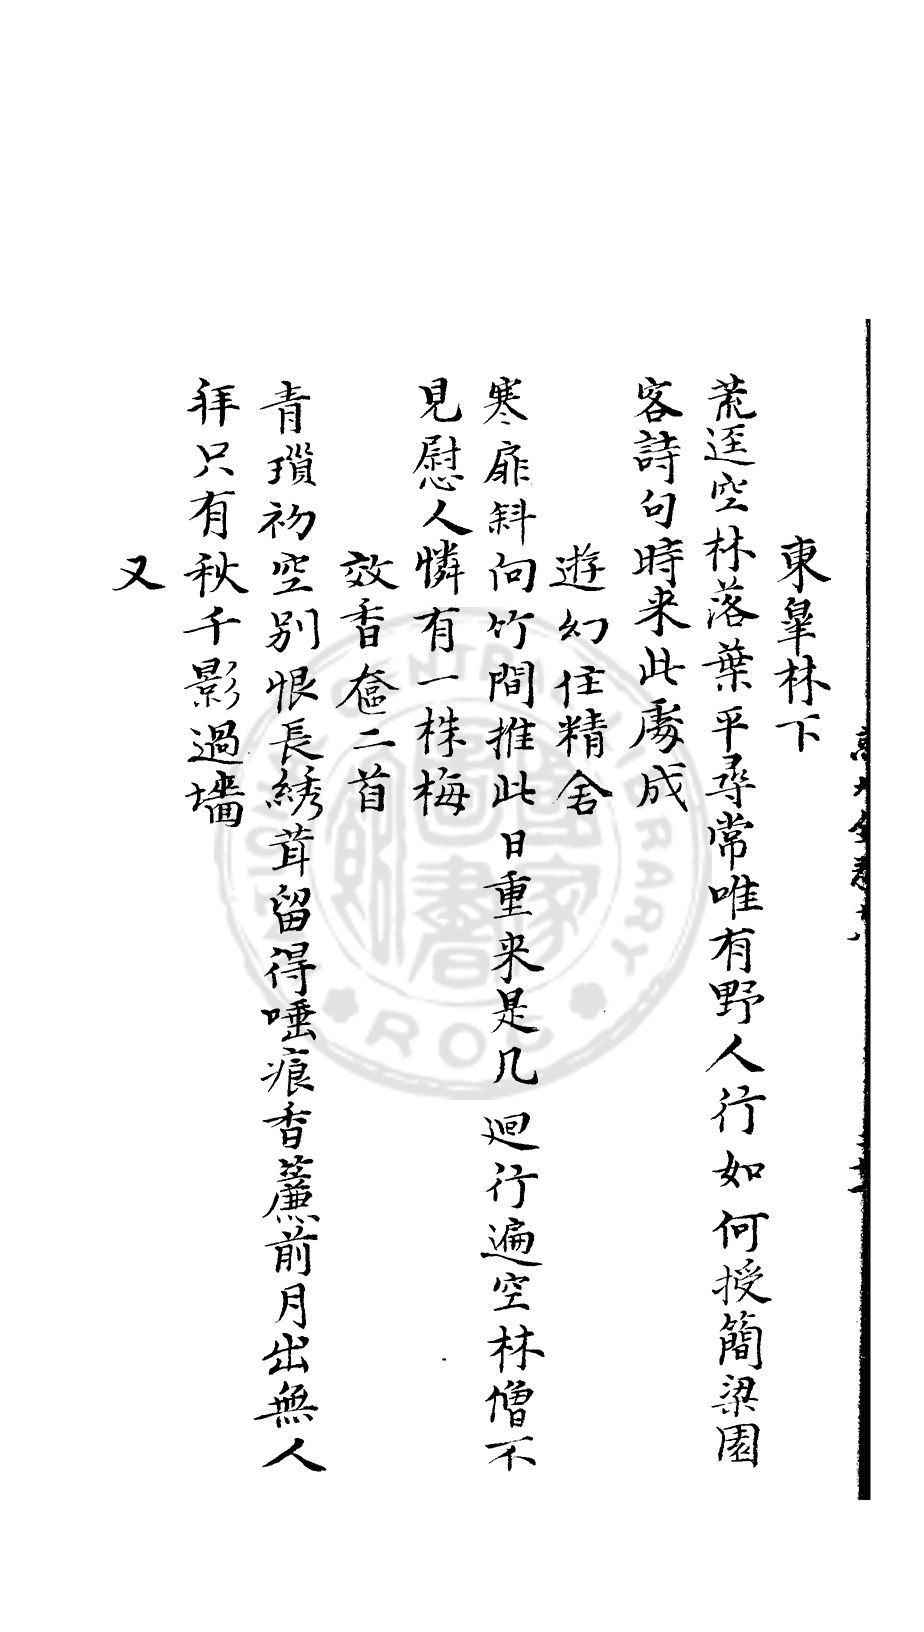 東皐林下
荒逕空林落葉平尋常唯有野人行如何授簡梁園
客詩句時来此處成
遊幻住精舍
寒扉斜向竹間推此日重来是几迴行遍空林僧不
見慰人憐有一株梅
效香奩二首
青瑣初空別恨長綉茸留得唾痕香簾前月出無人
拜只有秋千影過墻
又
NATIONAL CENTRAL LIBRARY
R.O.C
國家圖書館